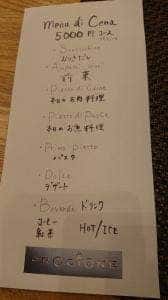 menu di Cena
5000円 コース
・Stuzzichino
おつまみ
前菜
・Piatto di Carne
旬のお肉料理
・Piatto di Pesce
旬のお魚料理
・Primo piatto
パスタ
・Dolce
デザート
・Bevanda ドリンク
コーヒー
紅茶 HOT/ICE